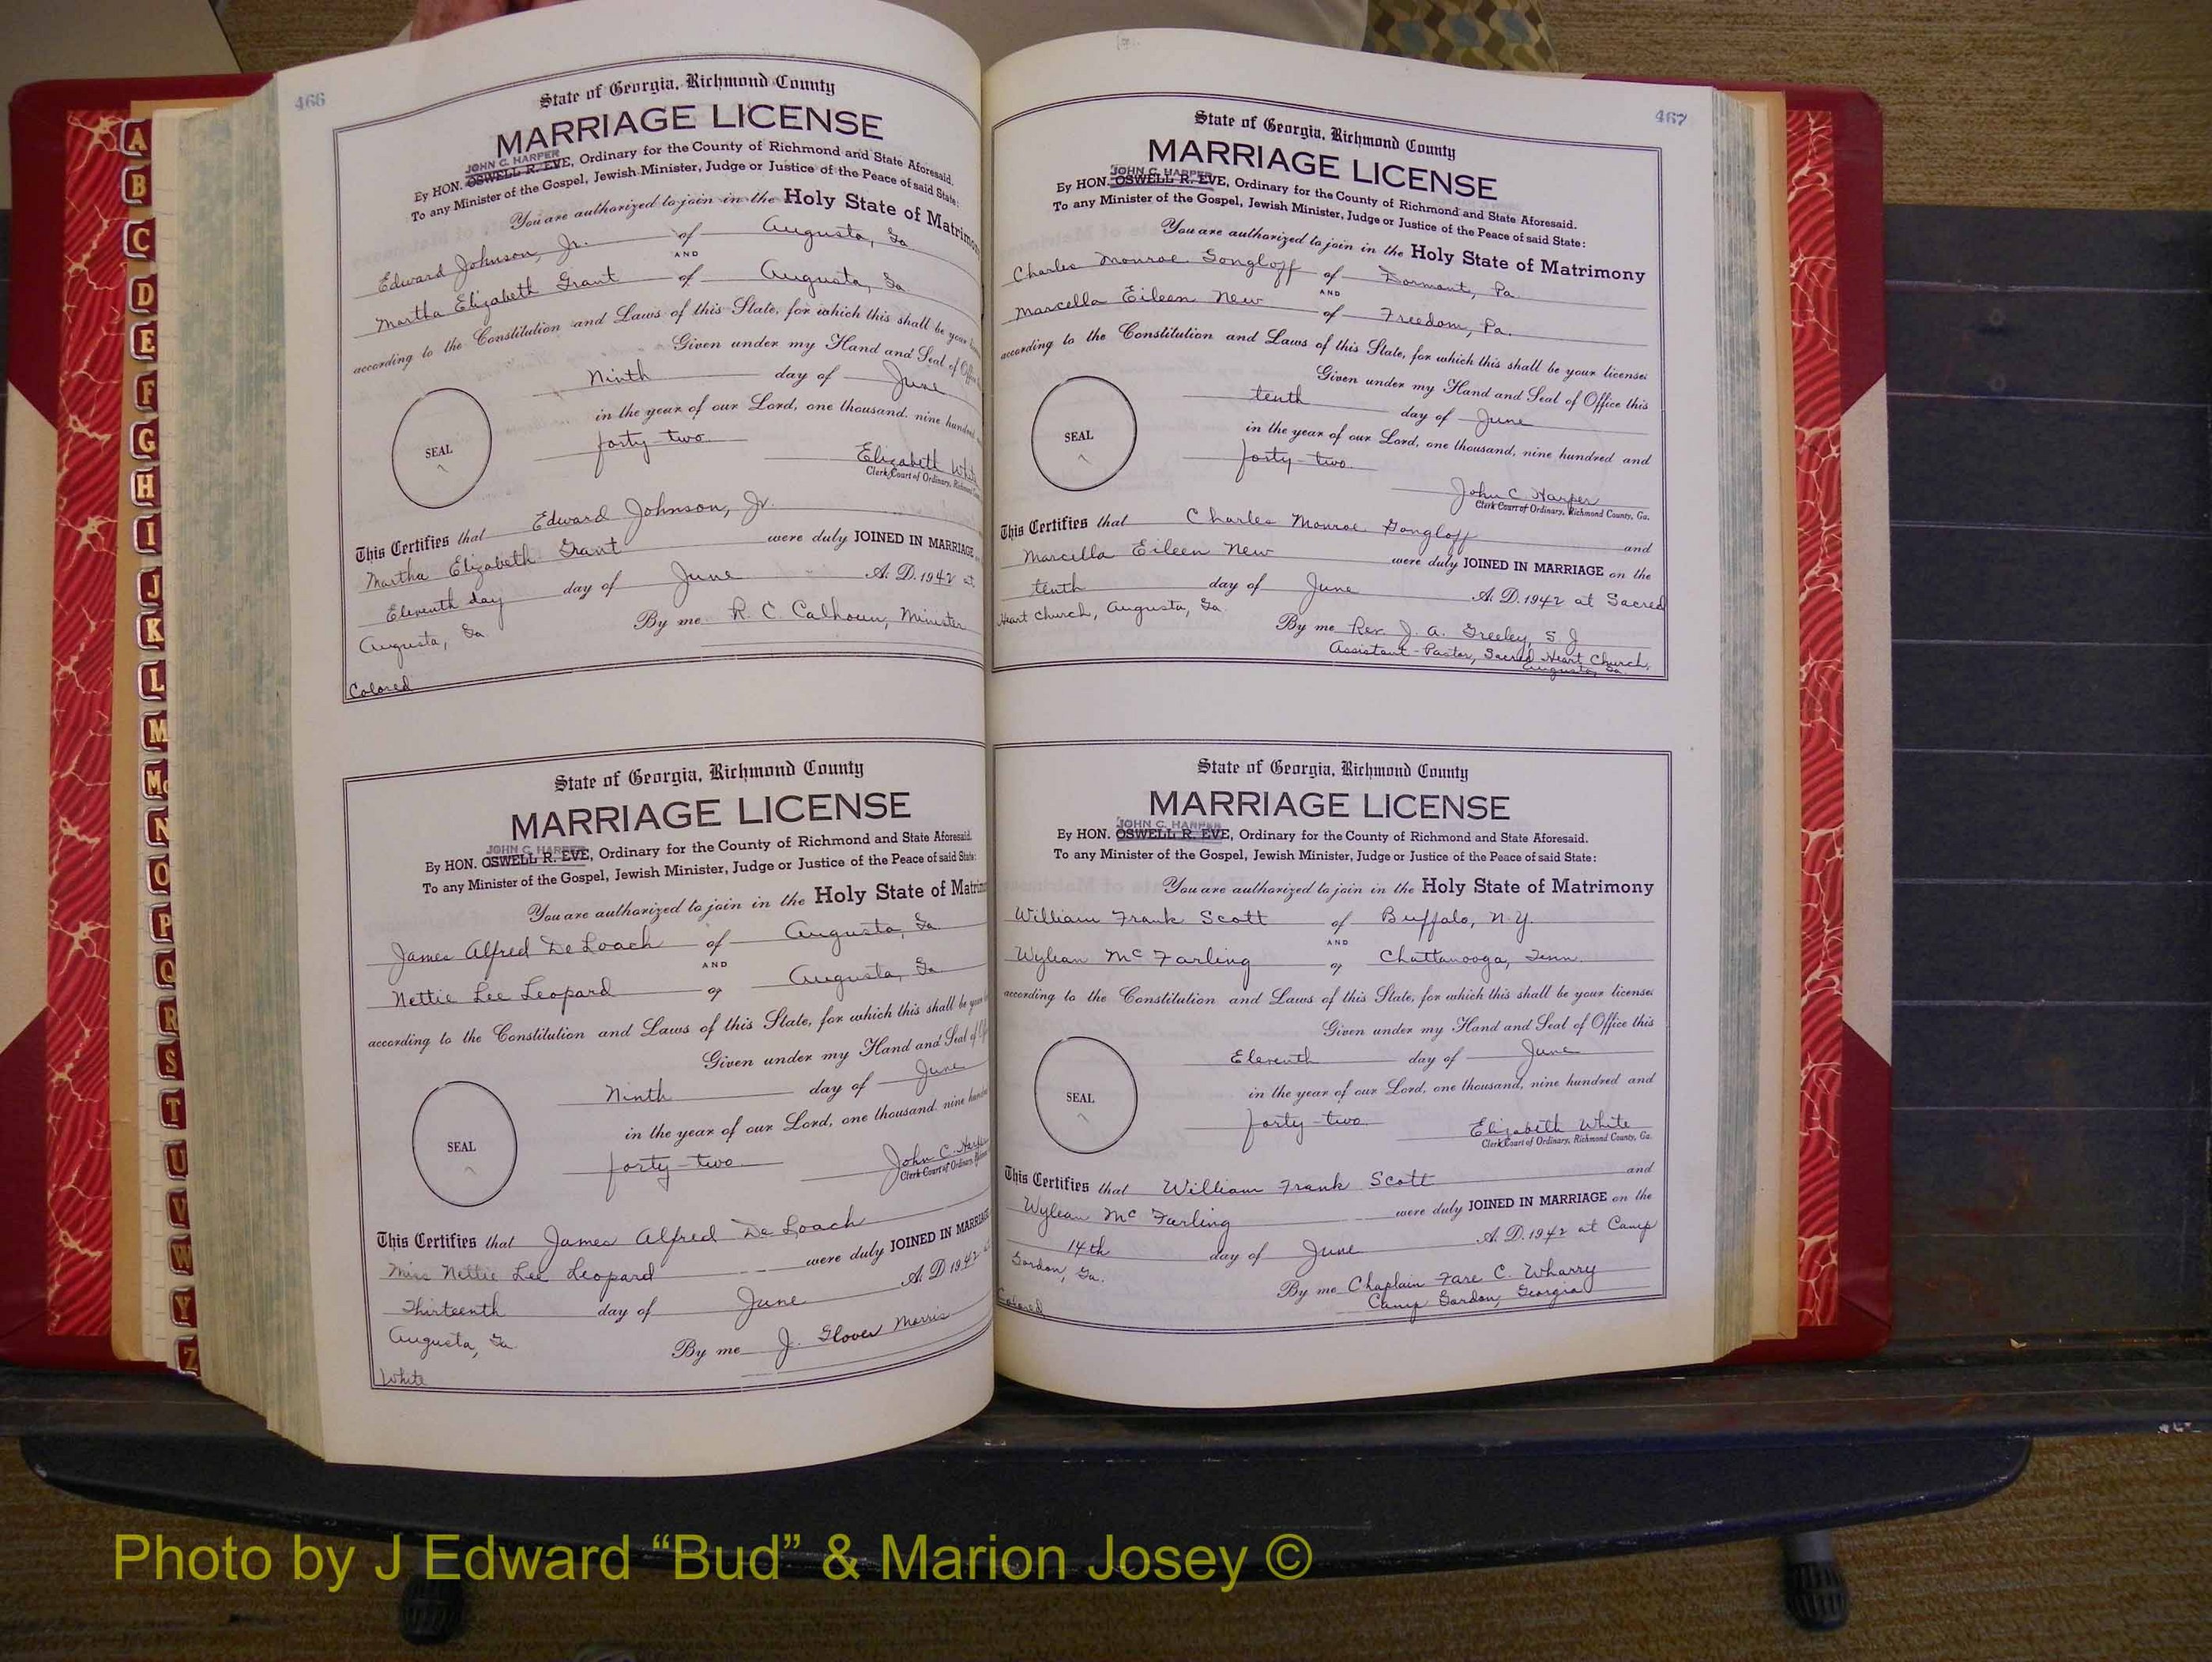 466
State of Georgia, Richmond County
MARRIAGE LICENSE
JOHN C. HARPER
By HON. OSWELL R. EVE, Ordinary for the County of Richmond and State Aforesaid.
To any Minister of the Gospel, Jewish Minister, Judge or Justice of the Peace of said State:
You are authorized to join in the Holy State of Matrimony
Edward Johnson, Jr. of Augusta, Ga
AND
Martha Elizabeth Grant of Augusta, Ga
according to the Constitution and Laws of this State, for which this shall be your
Given under my Hand and Seal of Office
Ninth day of June
in the year of our Lord, one thousand, nine hundred
forty-two
SEAL
Elizabeth White
Clerk Court of Ordinary, Richmond
This Certifies that Edward Johnson, Jr.
Martha Elizabeth Grant were duly JOINED IN MARRIAGE
Eleventh day day of June A. D. 1942 at
Augusta, Ga
By me R. C. Calhoun, Minister
Colored
State of Georgia, Richmond County
MARRIAGE LICENSE
JOHN C. HARPER
By HON. OSWELL R. EVE, Ordinary for the County of Richmond and State Aforesaid.
To any Minister of the Gospel, Jewish Minister, Judge or Justice of the Peace of said State:
You are authorized to join in the Holy State of Matrim
James Alfred De Loach of Augusta, Ga
AND
Nettie Lee Leopard of Augusta, Ga
according to the Constitution and Laws of this State, for which this shall be your
Given under my Hand and Seal of
Ninth day of June
in the year of our Lord, one thousand, nine hundred
forty-two
SEAL
John C. Harper
Clerk Court of Ordinary,
This Certifies that James Alfred De Loach
Miss Nettie Lee Leopard were duly JOINED IN MARRIAGE
Thirteenth day of June A. D. 1942
Augusta, Ga
By me J. Glover Morris
White
467
State of Georgia, Richmond County
MARRIAGE LICENSE
JOHN C. HARPER
By HON. OSWELL R. EVE, Ordinary for the County of Richmond and State Aforesaid.
To any Minister of the Gospel, Jewish Minister, Judge or Justice of the Peace of said State:
You are authorized to join in the Holy State of Matrimony
Charles Monroe Gongloff of Dormont, Pa.
AND
Marcella Eileen New of Freedom, Pa.
according to the Constitution and Laws of this State, for which this shall be your license:
Given under my Hand and Seal of Office this
tenth day of June
in the year of our Lord, one thousand, nine hundred and
forty-two
SEAL
John C Harper
Clerk Court of Ordinary, Richmond County, Ga.
This Certifies that Charles Monroe Gongloff and
Marcella Eileen New were duly JOINED IN MARRIAGE on the
tenth day of June A. D. 1942 at Sacred
Heart Church, Augusta, Ga.
By me Rev. J. A. Greeley, S J
Assistant-Pastor, Sacred Heart Church,
Augusta, Ga.
State of Georgia, Richmond County
MARRIAGE LICENSE
JOHN C. HARPER
By HON. OSWELL R. EVE, Ordinary for the County of Richmond and State Aforesaid.
To any Minister of the Gospel, Jewish Minister, Judge or Justice of the Peace of said State:
You are authorized to join in the Holy State of Matrimony
William Frank Scott of Buffalo, N.Y.
AND
Wylean McFarling of Chattanooga, Tenn.
according to the Constitution and Laws of this State, for which this shall be your license:
Given under my Hand and Seal of Office this
Eleventh day of June
in the year of our Lord, one thousand, nine hundred and
forty-two
SEAL
Elizabeth White
Clerk Court of Ordinary, Richmond County, Ga.
This Certifies that William Frank Scott and
Wylean McFarling were duly JOINED IN MARRIAGE on the
14th day of June A. D. 1942 at Camp
Gordon, Ga.
By me Chaplain Fare C. Wharry
Camp Gordon, Georgia
Colored
A
B
C
D
E
F
G
H
I
J
K
L
M
Mc
N
O
P
Q
R
S
T
U
V
W
Y
Z
Photo by J Edward “Bud” & Marion Josey ©